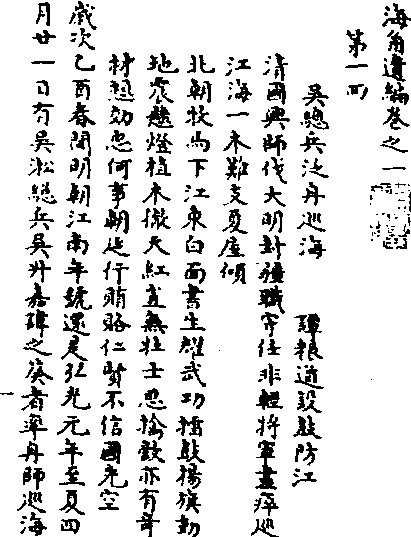 海角遺編卷之一
第一回
吳總兵泛舟巡海 粮道設防江
清國興師伐大明封疆職守任非輕將軍盡瘁巡
江海一木難支夏屋傾
北朝牧馬下江東白面書生耀武功擂鼓揚旗動
地震懸燈植木徹天紅豈無壯士思擒敵亦有奇
材想効忠何事朝廷行賄賂仁賢不信國空
歲次乙酉春間明朝江南年號還是弘光元年至夏四
月廿一日有吳淞總兵吳升嘉諱之葵者率舟師巡海